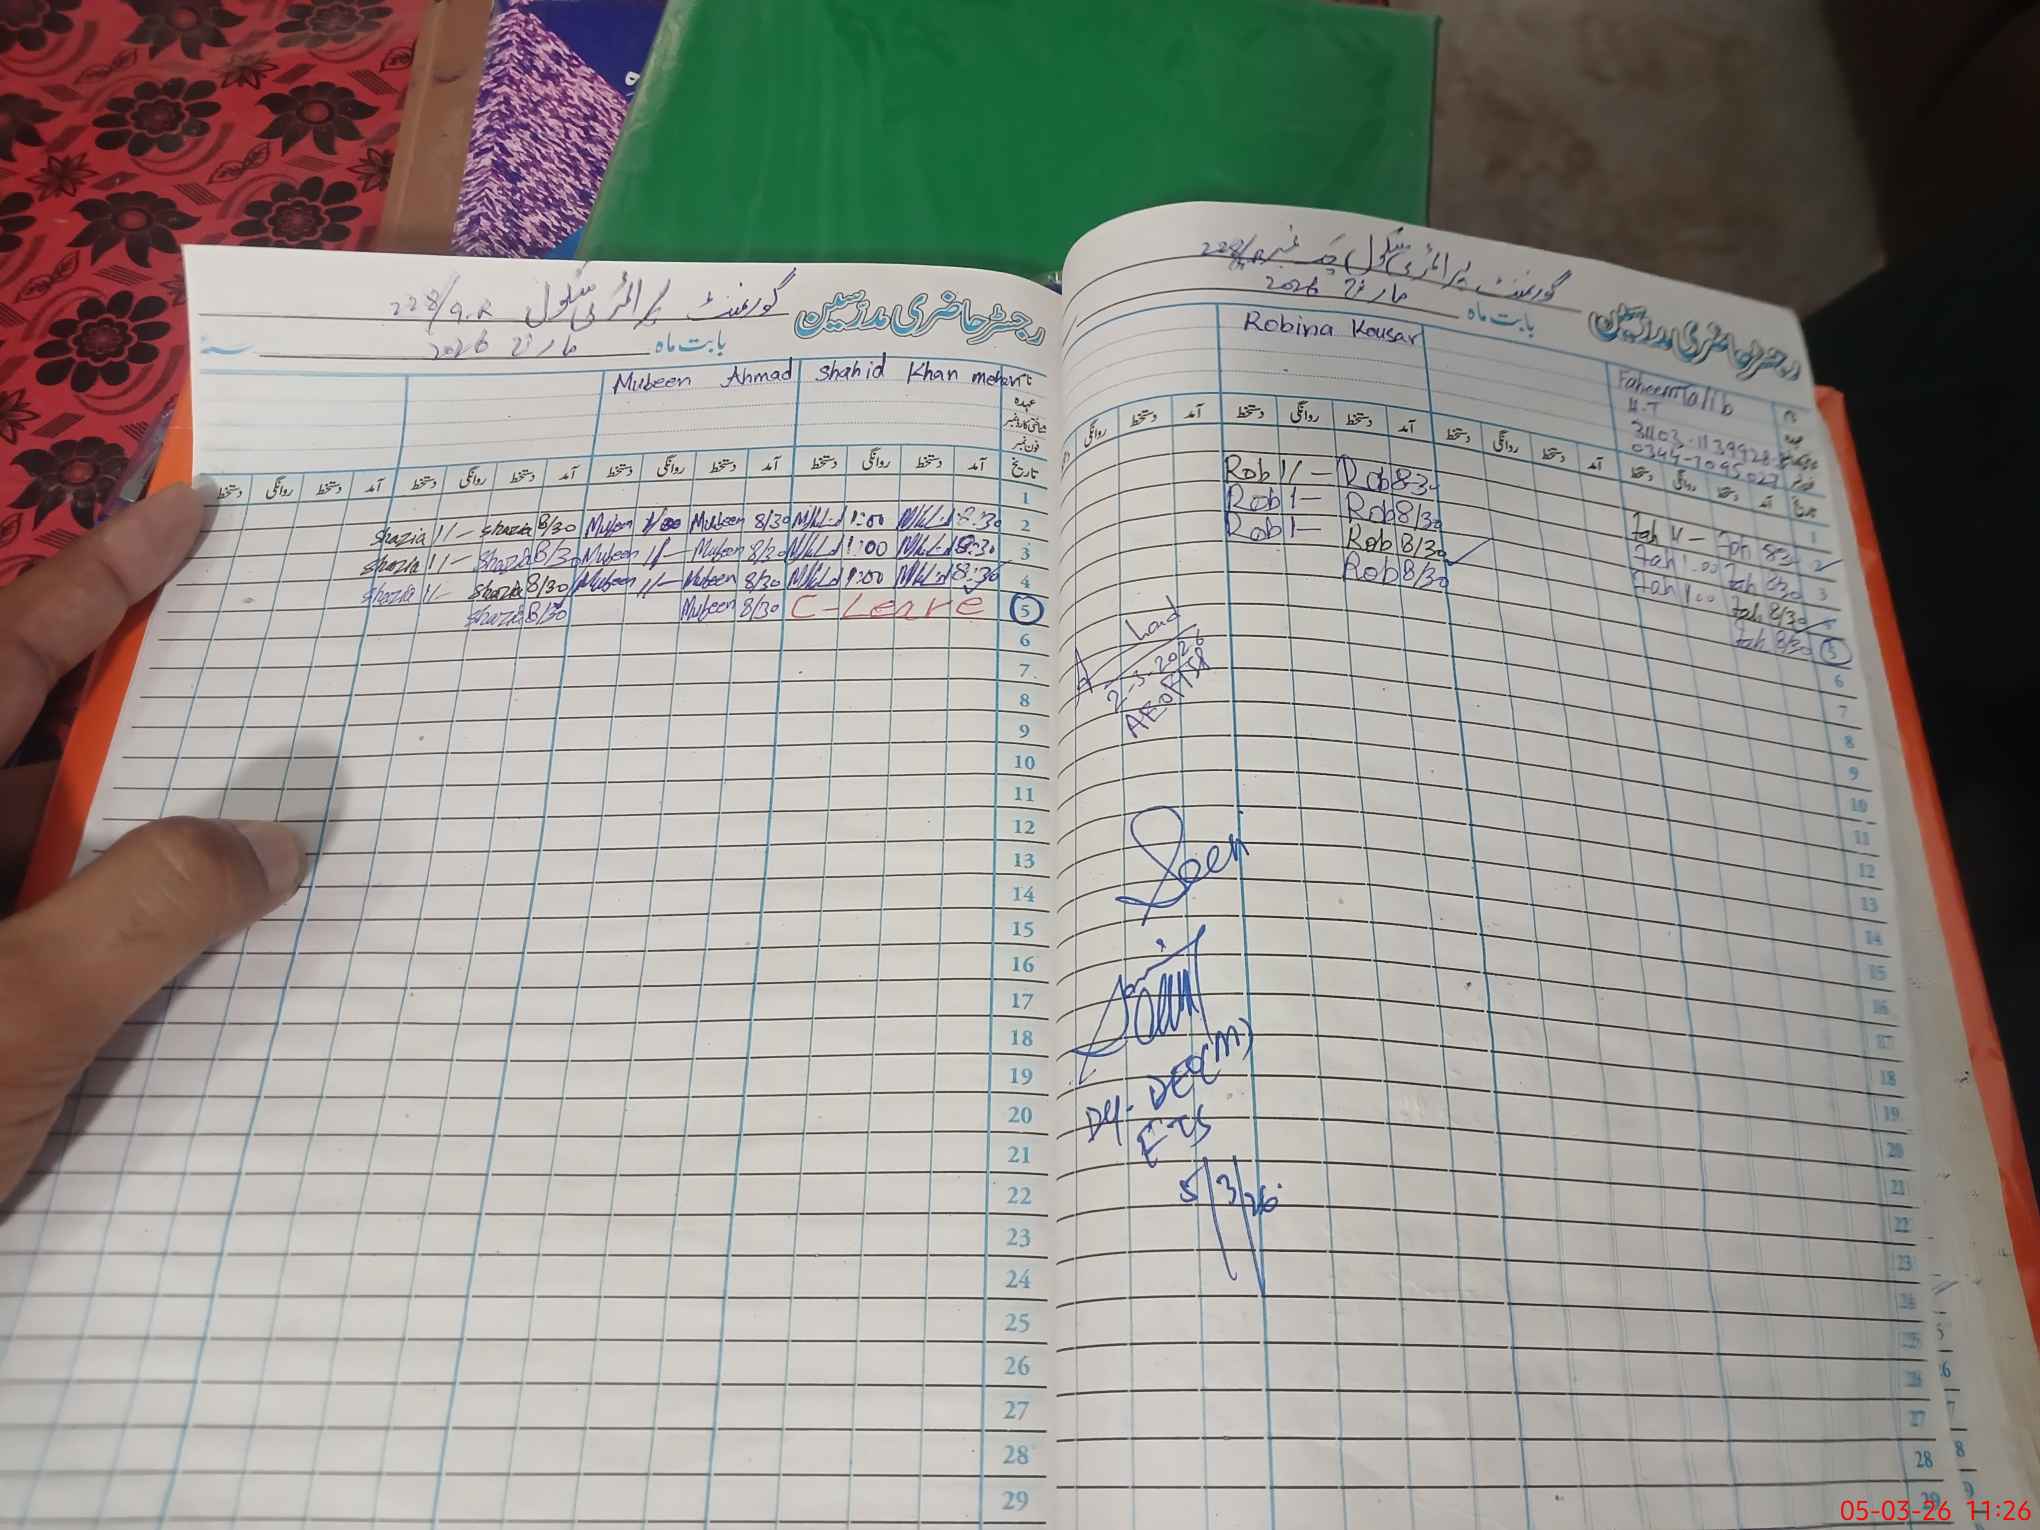 رجسٹر حاضری مدرسین
گورنمنٹ پرائمری سکول 228/9.R
بابت ماہ مارچ 2026
Shahid Khan
Mubeen Ahmad
عہدہ
فون نمبر
تاریخ آمد دستخط روانگی دستخط آمد دستخط روانگی دستخط آمد دستخط روانگی دستخط آمد دستخط روانگی دستخط
1
2 8:30 1:00 8/30 Mubeen 1/00 Mubeen 8/30 Shazia 1/- Shazia
3 8:30 1:00 8/30 Mubeen 1/- Mubeen 8/30 Shazia 1/- Shazia
4 8:30 1:00 8/30 Mubeen 1/- Mubeen 8/30 Shazia 1/- Shazia
5 C-Leave 8/30 Mubeen 8/30 Shazia
6
7
8
9
10
11
12
13
14
15
16
17
18
19
20
21
22
23
24
25
26
27
28
29
رجسٹر حاضری مدرسین
گورنمنٹ پرائمری سکول چک نمبر
بابت ماہ مارچ 2026
Faheem Talib
H.T
Robina Kousar
آمد دستخط روانگی دستخط آمد دستخط روانگی دستخط آمد دستخط روانگی دستخط آمد دستخط روانگی
1
2 830 Fah 1/- Fah 830 Rob 1/- Rob
3 830 Fah 1.00 Fah 8/30 Rob 1- Rob
8/30 Fah 1.00 Fah 8/30 Rob 1- Rob
5 8/30 Fah 8/30 Rob
6
7
8
9
10
11
12
13
14
15
16
17
18
19
20
21
22
23
24
25
26
27
28
29
2-3-2026
Seen
Dy. DEO(M)
5/3/26
05-03-26 11:26